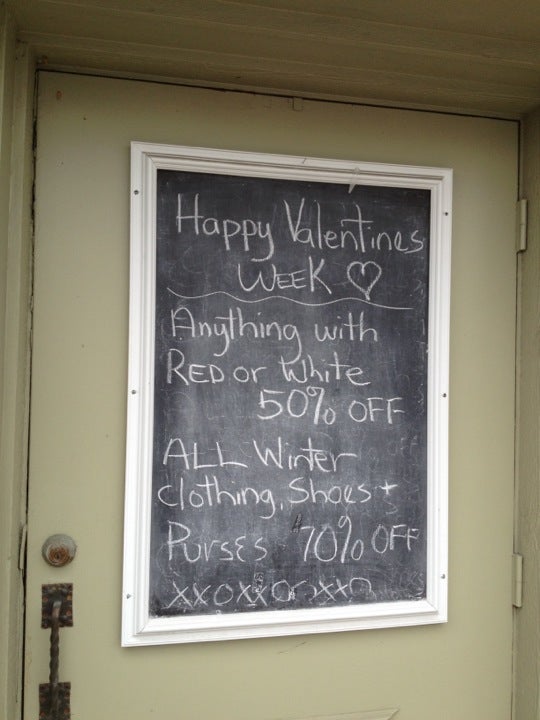 Happy Valentines
WEEK ♡
Anything with
RED or White
50% OFF
ALL Winter
clothing, Shoes +
Purses 70% OFF
XXOXXOOXXO